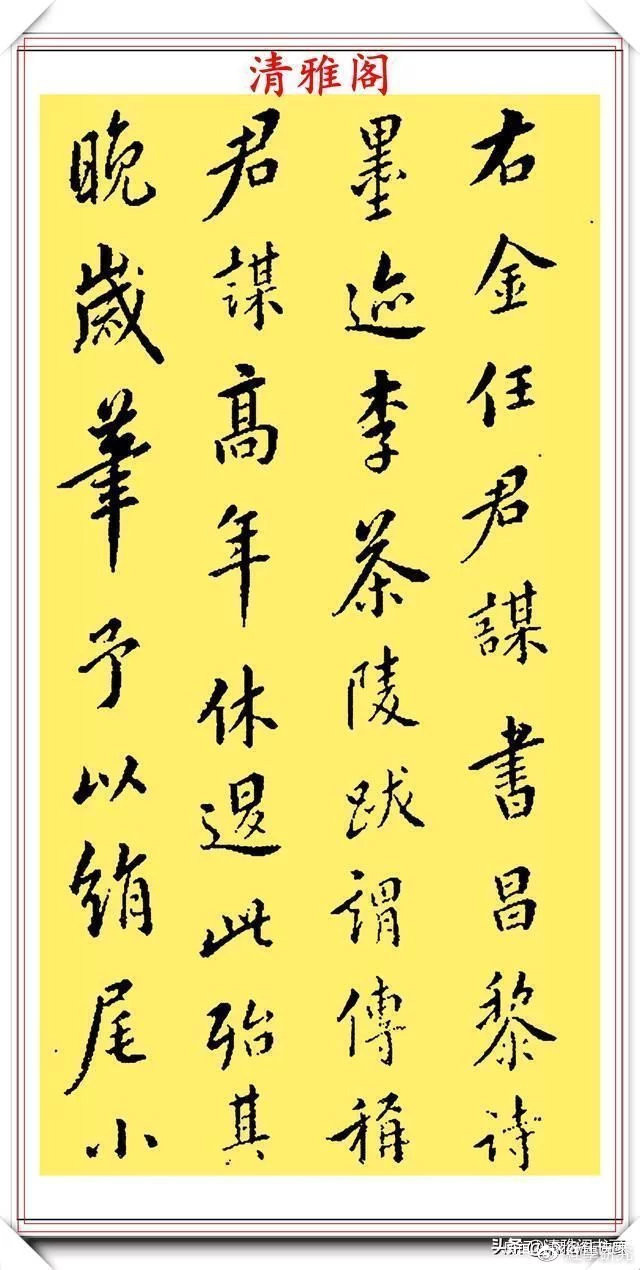 清雅阁
右金任君謀書昌黎詩
墨迹李茶陵跋謂傳稱
君謀高年休退此殆其
晚歲筆予以絹尾小
头条@清雅阁书斋